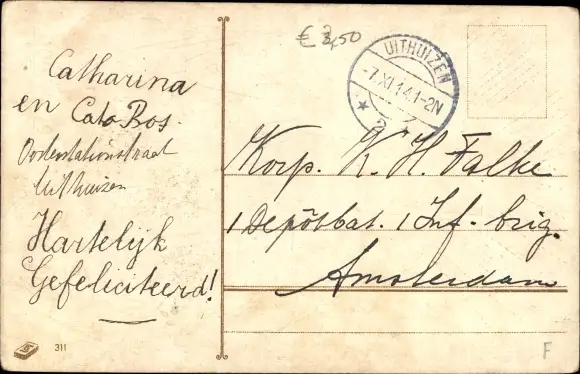 € 3,50
UITHUIZEN
-7.XI.14.1-2N
Catharina
en Cato Bos.
Uithuizen
Hartelijk
Gefeliciteerd!
Korp. K. H. Falke
1 Depôtbat. 1 Inf. brig.
Amsterdam
311
F